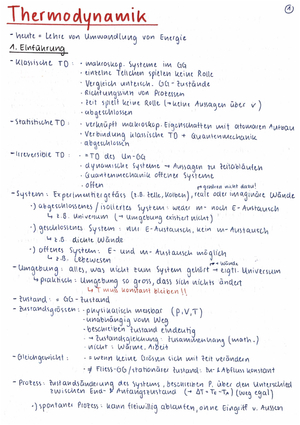 Thermodynamik
- heute = Lehre von Umwandlung von Energie
1. Einführung
- Klassische TD: · makroskop. Systeme im GG
· einzelne Teilchen spielen keine Rolle
· Vergleich untersch. GG-Zustände
· Richtungssinn von Prozessen
· Zeit spielt keine Rolle (→ keine Aussagen über v)
· abgeschlossen
- Statistische TD: · verknüpft makroskop. Eigenschaften mit atomaren Aufbau
· Verbindung klassische TD + Quantenmechanik
· abgeschlossen
- Irreversible TD: · = TD des Un-GG
· dynamische Systeme → Aussagen zu Zeitabläufen
· Quantenmechanik offener Systeme
· offen
- System: Experimentiergefäss (z.B. Zelle, Kolben), reale oder imaginäre Wände
·) abgeschlossenes / isoliertes System: weder m- noch E-Austausch
↳ z.B. Universum (→ Umgebung existiert nicht)
·) geschlossenes System: nur E-Austausch, kein m-Austausch
↳ z.B. dichte Wände
·) offenes System: E- und m-Austausch möglich
↳ z.B. Lebewesen
- Umgebung: alles, was nicht zum System gehört → eigtl. Universum
↳ praktisch: Umgebung so gross, dass sich nichts ändert
↳ T muss konstant bleiben!!
- Zustand: = GG-Zustand
- Zustandsgrössen: · physikalisch messbar (p, V, T)
· unabhängig vom Weg
· beschreiben Zustand eindeutig
· → Zustandsgleichung: Zusammenhang (math.)
· nicht: Wärme, Arbeit
- Gleichgewicht: · = wenn keine Grössen sich mit Zeit verändern
· ≠ Fliess-GG/stationärer Zustand: Zu- & Abfluss konstant
- Prozess: Zustandsänderung des Systems, beschreiben P. über den Unterschied
zwischen End- & Anfangszustand (→ ΔT = T₂ - T₁) (Weg egal)
·) spontaner Prozess: kann freiwillig ablaufen, ohne Eingriff v. Aussen